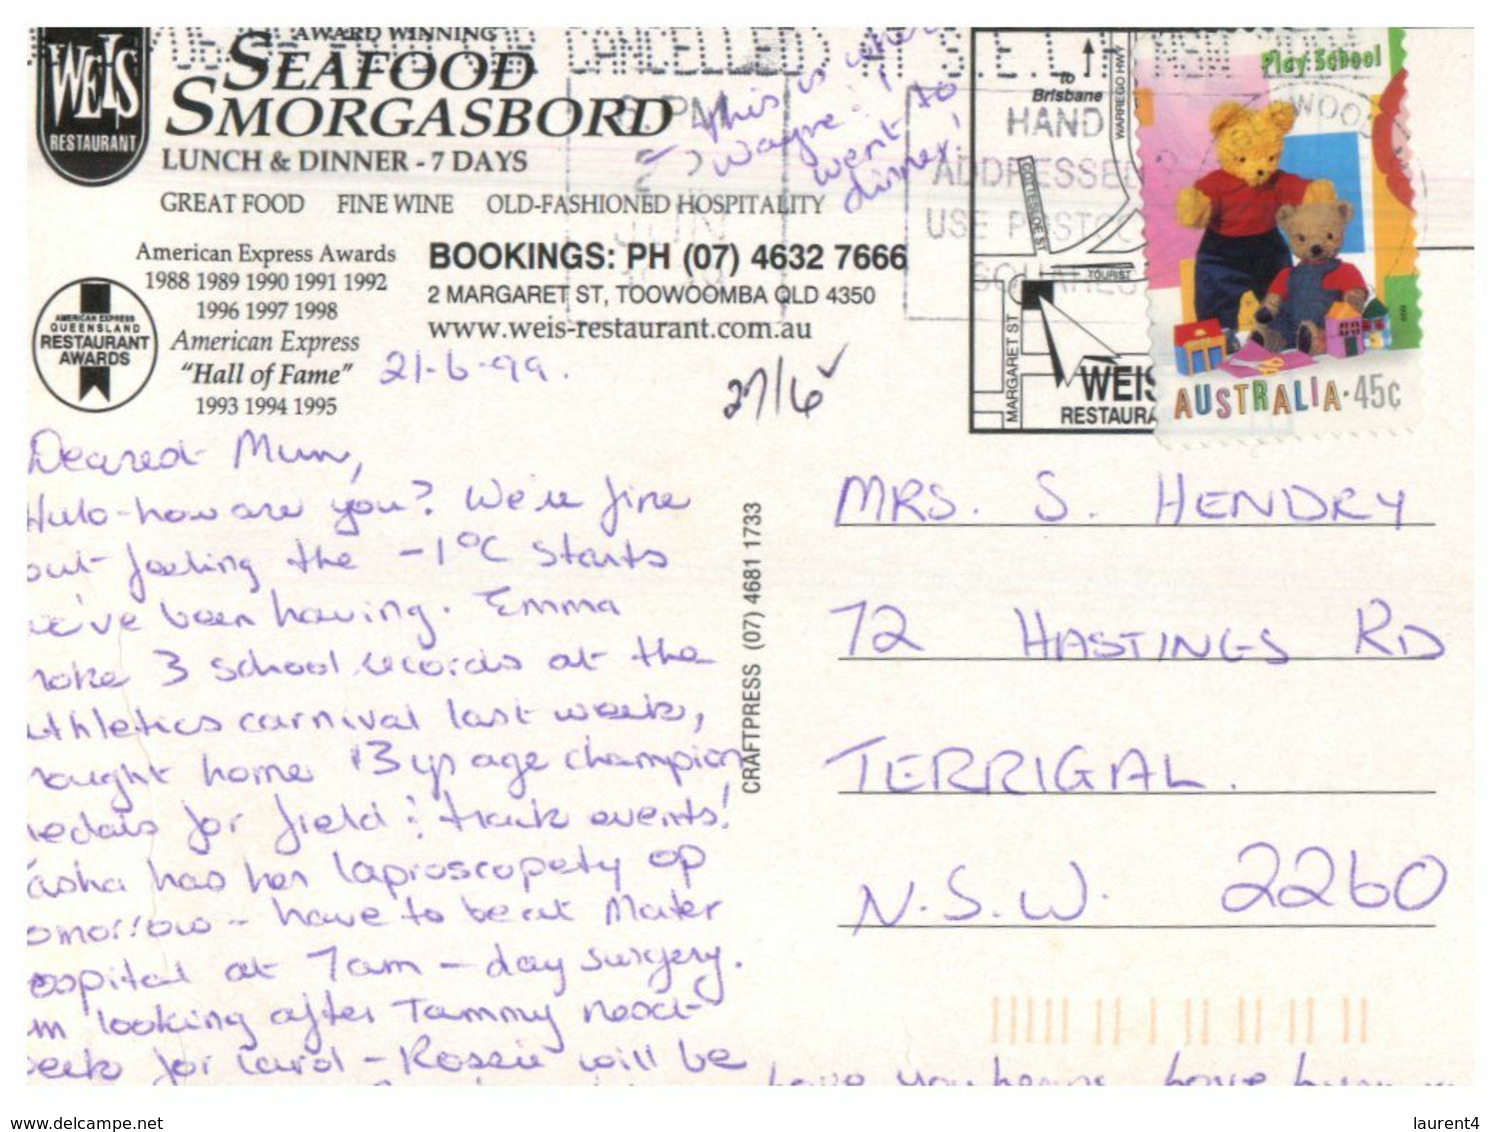 WEIS
RESTAURANT
AWARD WINNING
SEAFOOD
SMORGASBORD
LUNCH & DINNER - 7 DAYS
GREAT FOOD FINE WINE OLD-FASHIONED HOSPITALITY
American Express Awards
1988 1989 1990 1991 1992
1996 1997 1998
American Express
"Hall of Fame"
1993 1994 1995
AMERICAN EXPRESS
QUEENSLAND
RESTAURANT
AWARDS
BOOKINGS: PH (07) 4632 7666
2 MARGARET ST, TOOWOOMBA QLD 4350
www.weis-restaurant.com.au
This is where
Wayne & I
went to
dinner!
CANCELLED AT S.E.
6-PM
JUN
HAND
ADDRESSED
USE POSTCODE
SQUARES
to
Brisbane
WARREGO HWY
TOURIST
MARGARET ST
WEIS
RESTAURA
Play School
AUSTRALIA·45c
1999
21-6-99.
27/6 ✓
Dearest Mum,
Hullo - how are you? We're fine
but feeling the -1°C starts
we've been having. Emma
broke 3 school records at the
athletics carnival last week,
brought home 13 yr age champion
medals for field & track events!
Tasha has her laproscopety op
tomorrow - have to be at Mater
hospital at 7am - day surgery.
am looking after Tammy next
week for Carol - Rossie will be
CRAFTPRESS (07) 4681 1733
MRS. S. HENDRY
72 HASTINGS RD
TERRIGAL.
N.S.W. 2260
www.delcampe.net
laurent4